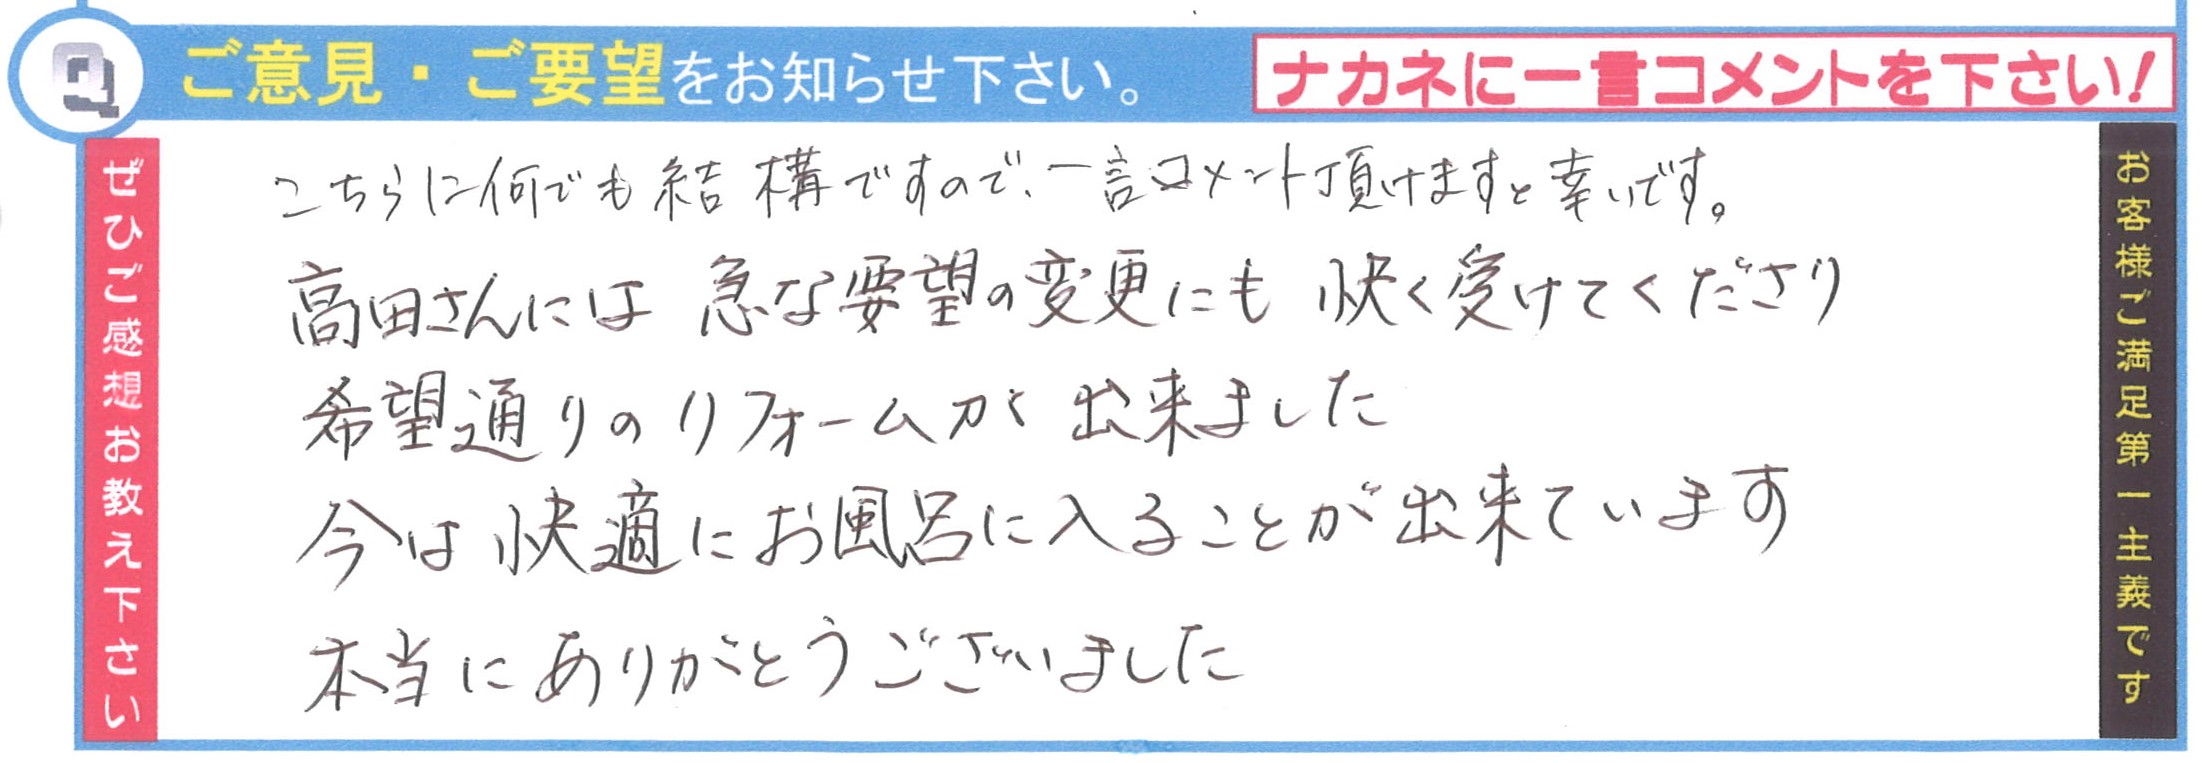 Q ご意見・ご要望をお知らせ下さい。
ナカネに一言コメントを下さい!
ぜひご感想お教え下さい
こちらに何でも結構ですので、一言コメント頂けますと幸いです。
高田さんには 急な要望の変更にも 快く受けてくださり
希望通りのリフォームが 出来ました
今は快適にお風呂に入ることが出来ています
本当にありがとうございました
お客様ご満足第一主義です